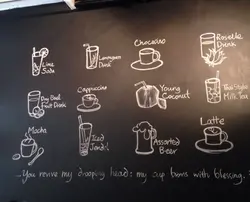 Chococino
Roselle
Drink
Lime
Soda
Lemongrass
Drink
Cappuccino
Young
Coconut
Thai Style
Milk Tea
Fruit Drink
Mocha
Iced
Assorted
Beer
Latte
You revive my drooping head: my cup brims with blessing.